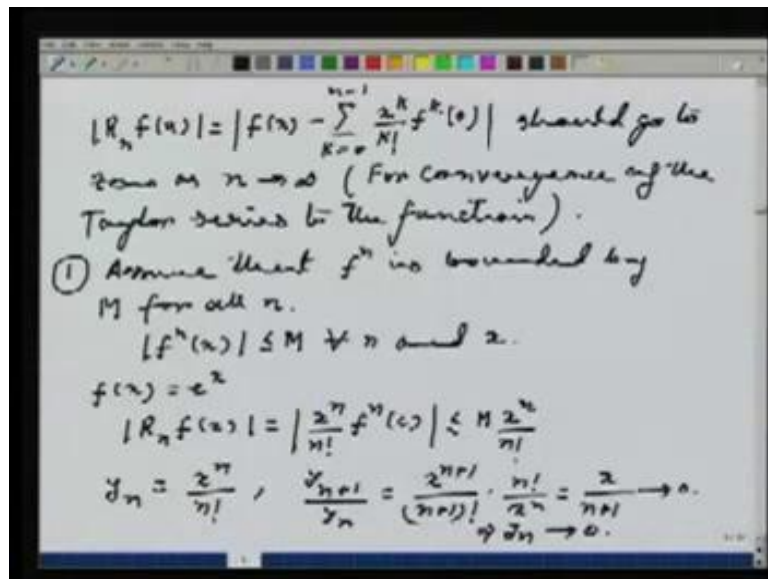 |R_n f(x)| = |f(x) - \sum_{k=0}^{n-1} \frac{x^k}{k!} f^k(0)| should go to
zero as n → ∞ (For convergence of the
Taylor series to the function).
① Assume that f^n is bounded by
M for all n.
|f^n(x)| ≤ M ∀ n and x.
f(x) = e^x
|R_n f(x)| = |\frac{x^n}{n!} f^n(c)| ≤ M \frac{x^n}{n!}
y_n = \frac{x^n}{n!}, \frac{y_{n+1}}{y_n} = \frac{x^{n+1}}{(n+1)!} · \frac{n!}{x^n} = \frac{x}{n+1} → 0.
⇒ y_n → 0.